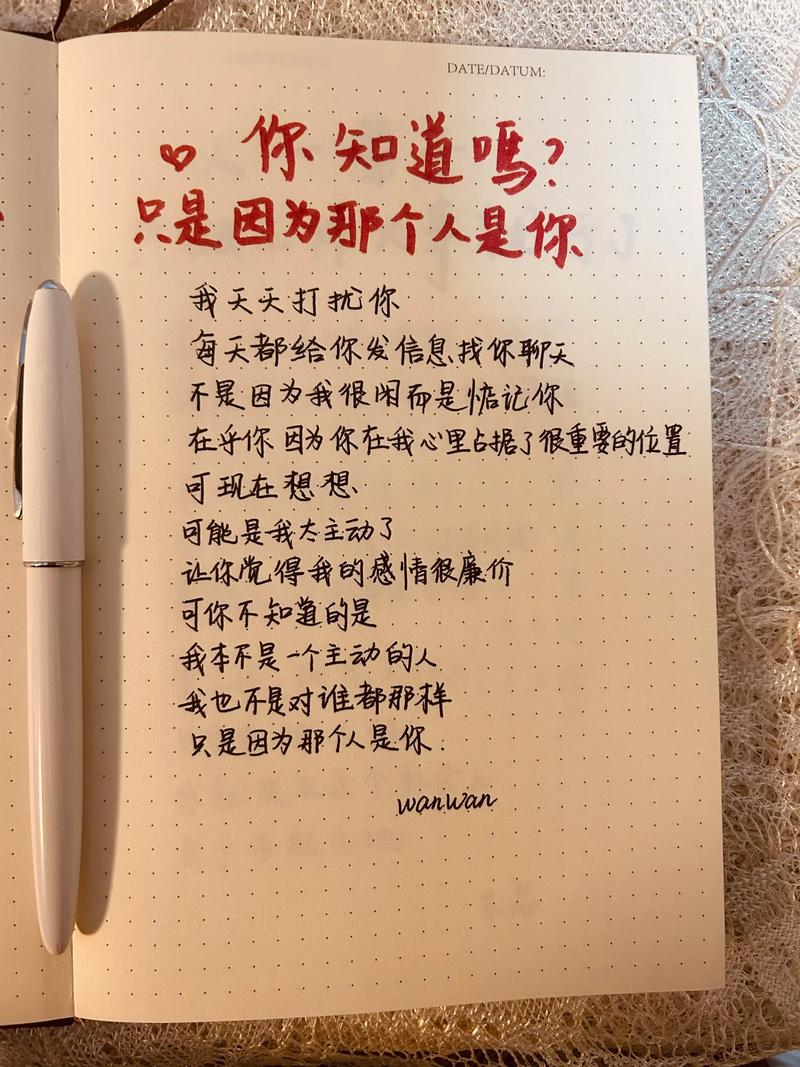 DATE/DATUM:
♡ 你知道嗎?
只是因为那个人是你
我天天打扰你
每天都给你发信息找你聊天
不是因为我很闲而是惦记你
在乎你因为你在我心里占据了很重要的位置
可现在想想、
可能是我太主动了
让你觉得我的感情很廉价
可你不知道的是
我本不是一个主动的人
我也不是对谁都那样
只是因为那个人是你.
wanwan